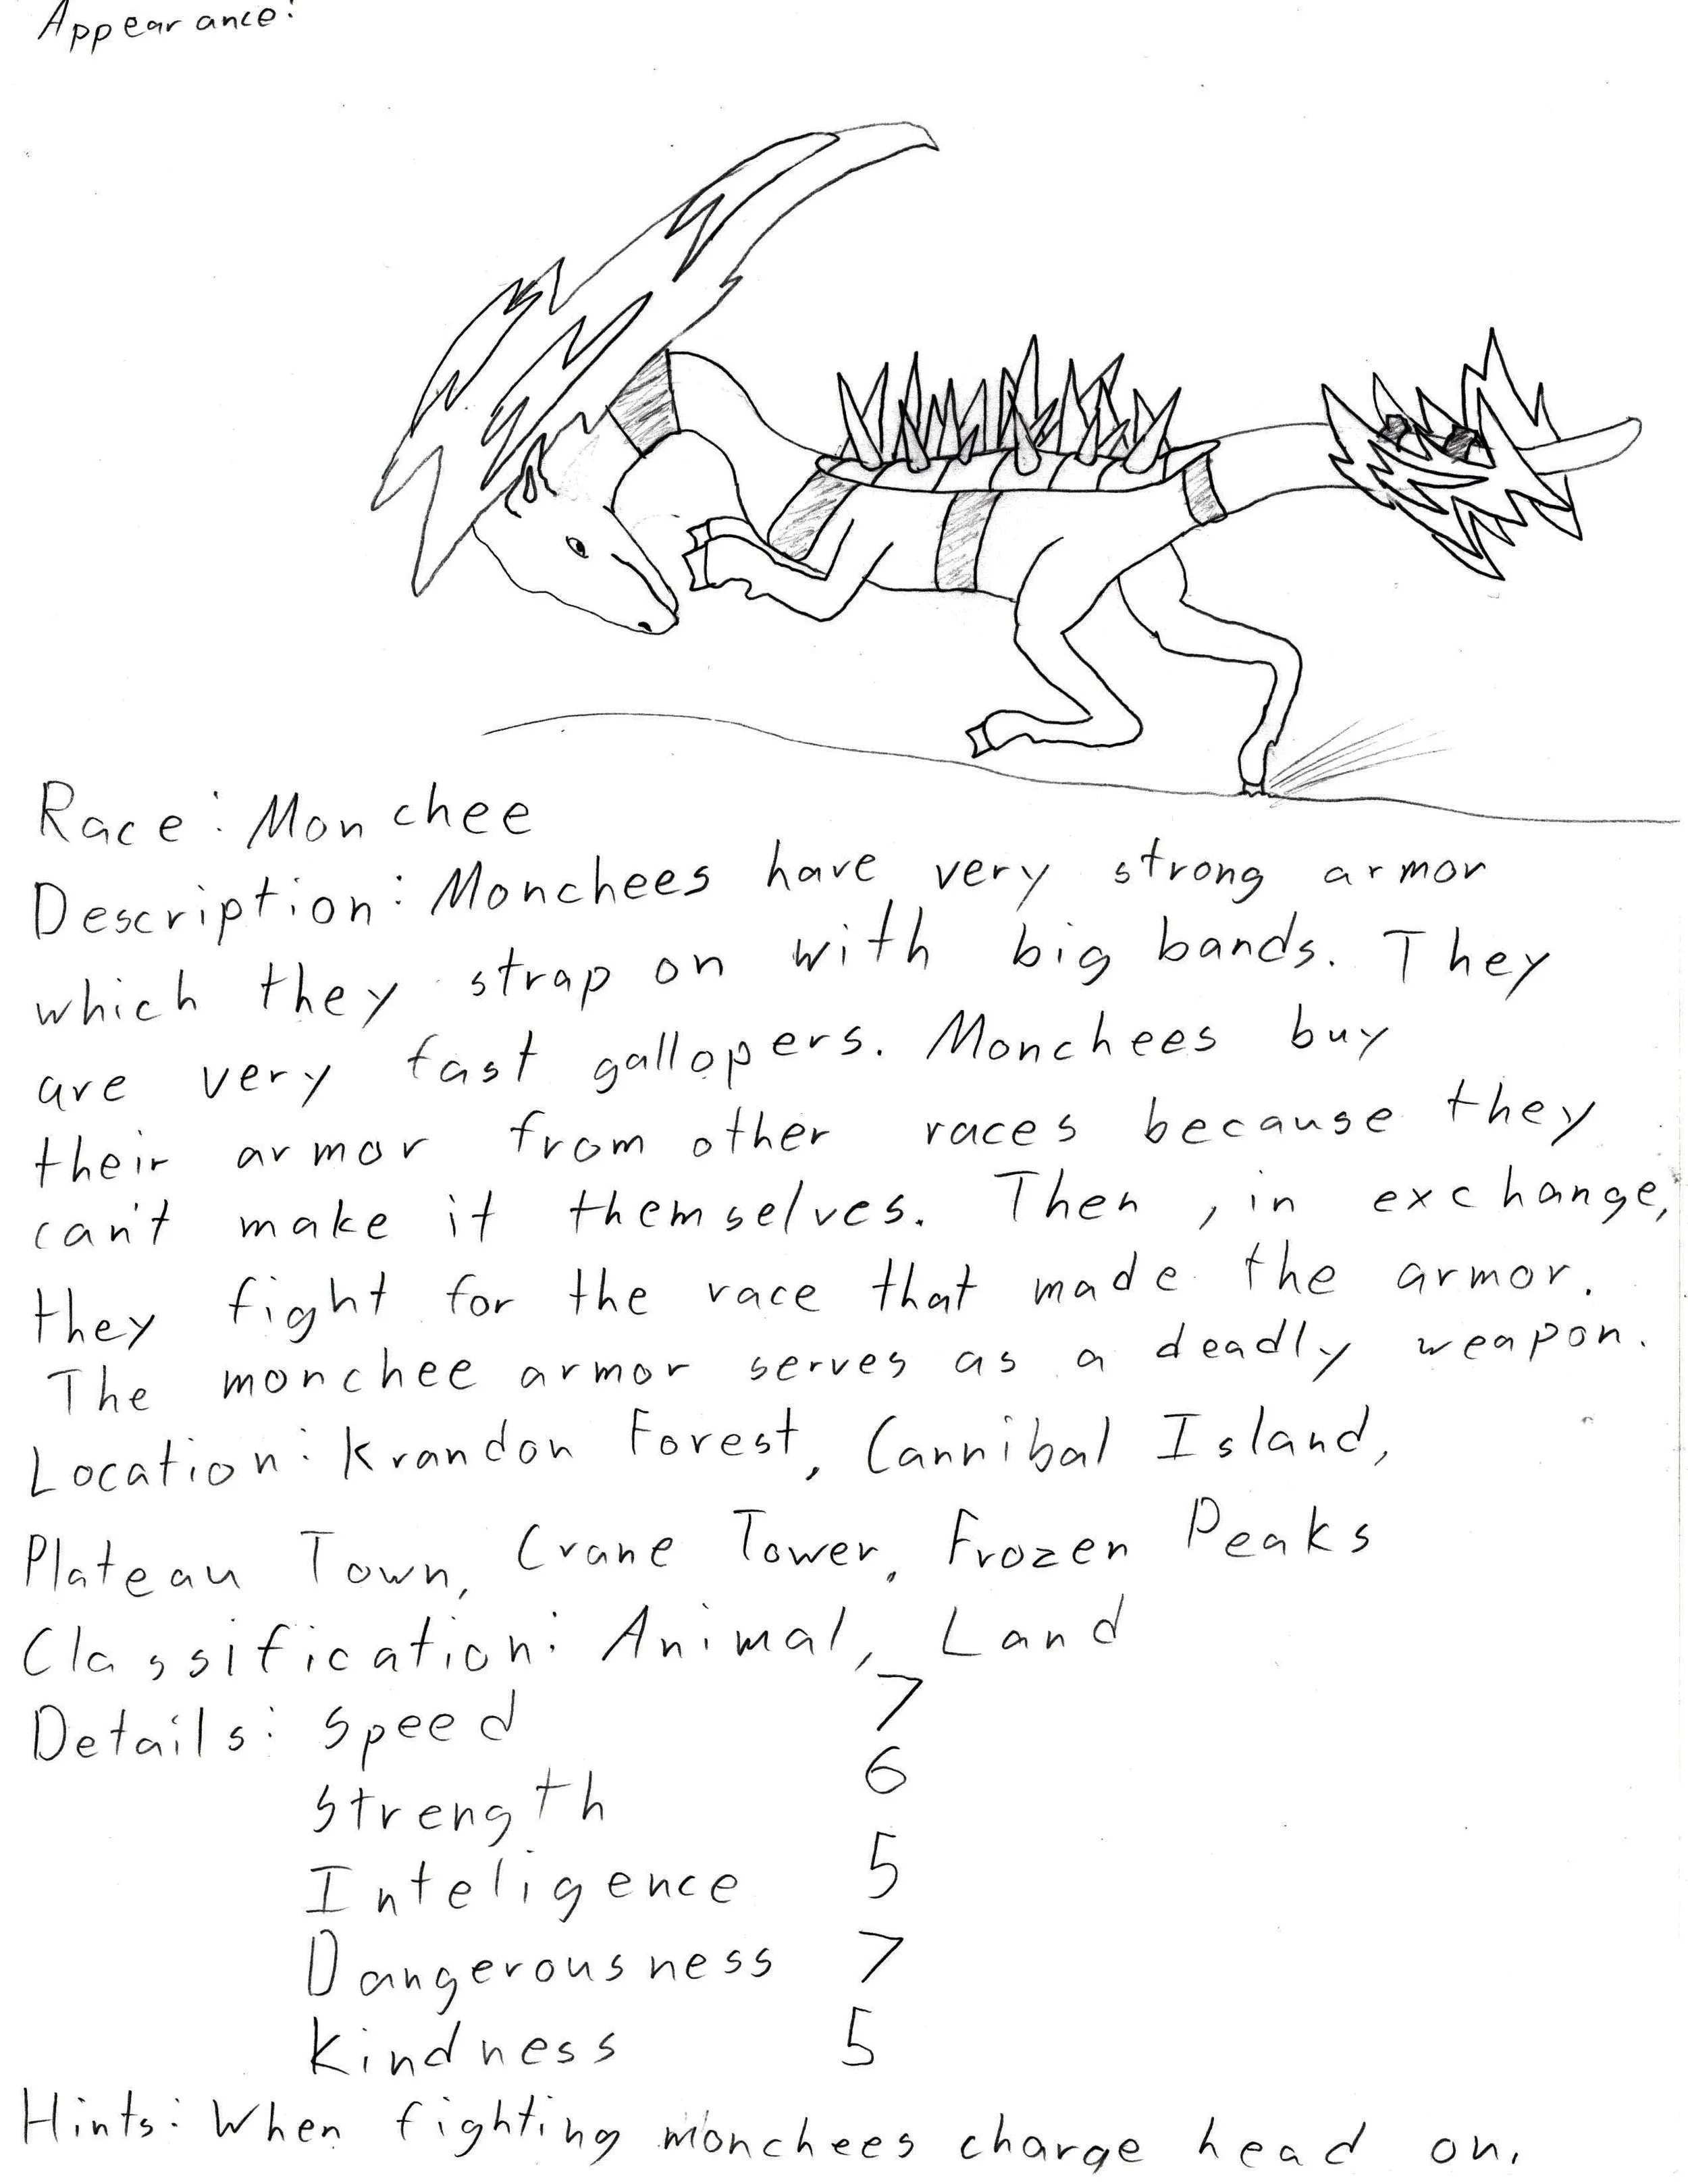 Appearance:
Race: Monchee
Description: Monchees have very strong armor
which they strap on with big bands. They
are very fast gallopers. Monchees buy
their armor from other races because they
can't make it themselves. Then, in exchange,
they fight for the race that made the armor.
The monchee armor serves as a deadly weapon.
Location: Krandon Forest, Cannibal Island,
Plateau Town, Crane Tower, Frozen Peaks
Classification: Animal, Land
Details: Speed 7
Strength 6
Inteligence 5
Dangerousness 7
Kindness 5
Hints: When fighting monchees charge head on.